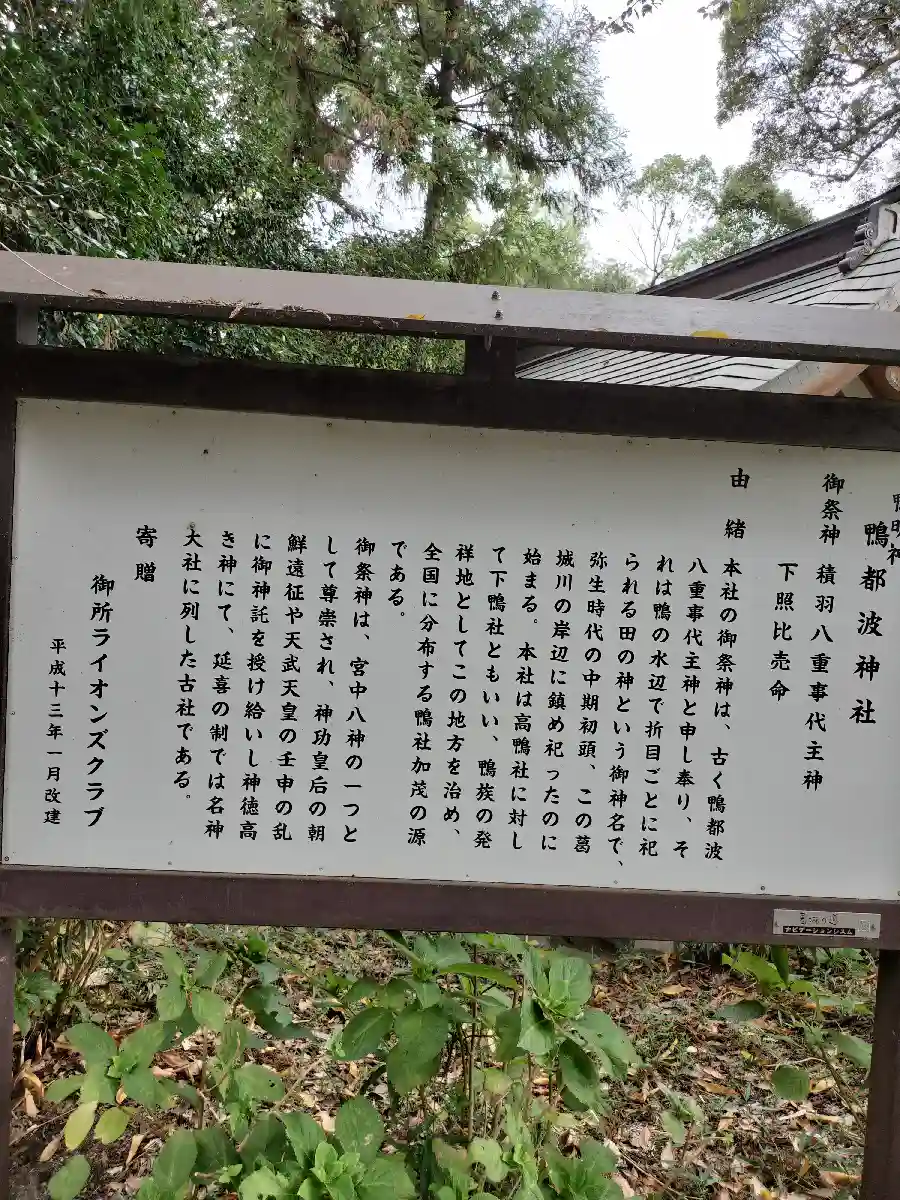 鴨明神
鴨都波神社
御祭神 積羽八重事代主神
下照比売命
由緒 本社の御祭神は、古く鴨都波
八重事代主神と申し奉り、そ
れは鴨の水辺で折目ごとに祀
られる田の神という御神名で、
弥生時代の中期初頭、この葛
城川の岸辺に鎮め祀ったのに
始まる。本社は高鴨社に対し
て下鴨社ともいい、鴨族の発
祥地としてこの地方を治め、
全国に分布する鴨社加茂の源
である。
御祭神は、宮中八神の一つと
して尊崇され、神功皇后の朝
鮮遠征や天武天皇の壬申の乱
に御神託を授け給いし神徳高
き神にて、延喜の制では名神
大社に列した古社である。
寄贈
御所ライオンズクラブ
平成十三年一月改建
ナビゲーションシステム